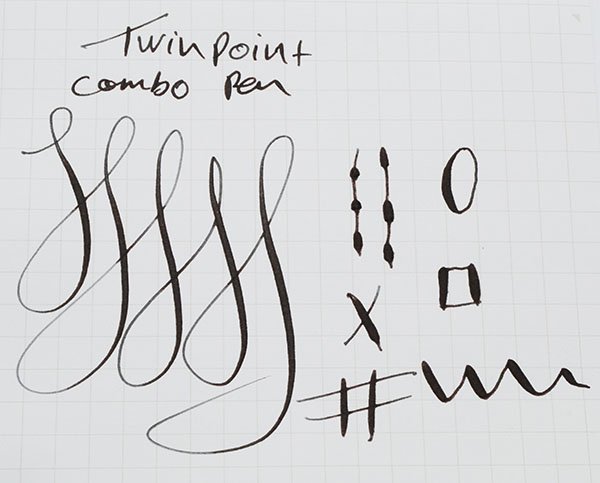 Twin Point
Combo Pen